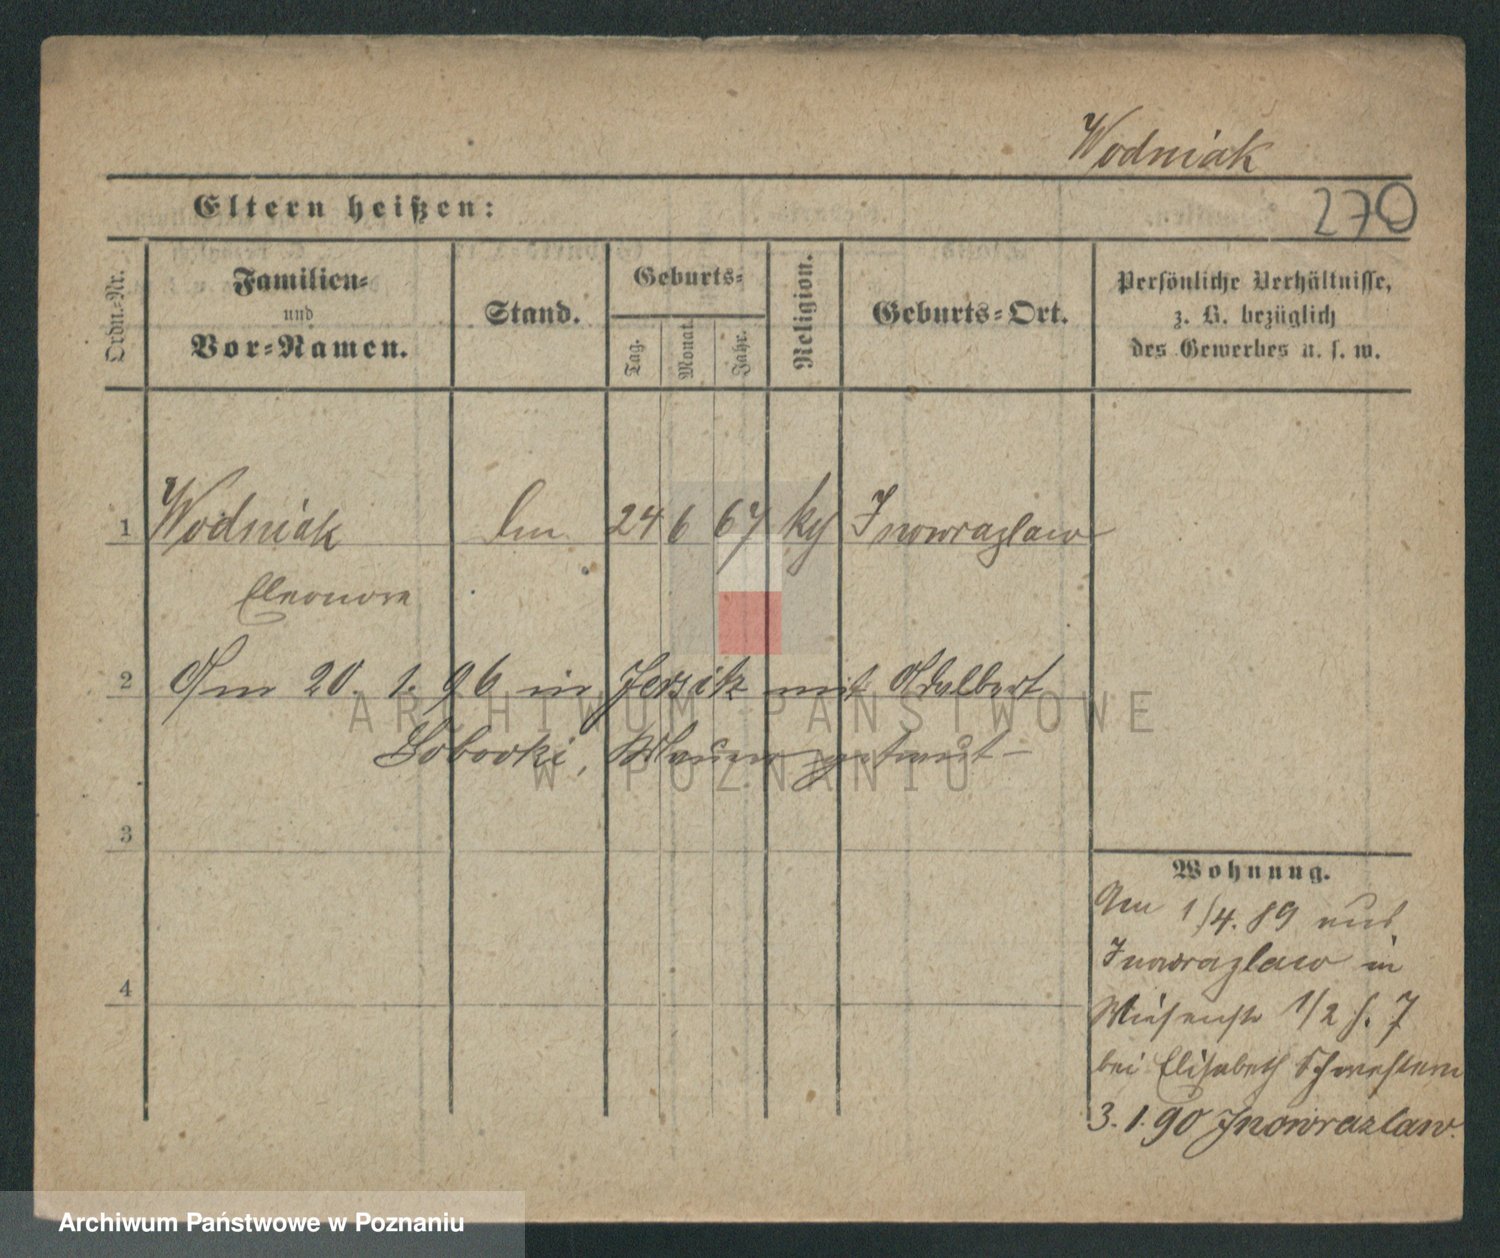 Wodniak
270
Eltern heißen:
Ordn.-Nr.
Familien-
und
Vor-Namen.
Stand.
Geburts-
Tag.
Monat.
Jahr.
Religion.
Geburts-Ort.
Persönliche Verhältnisse,
z. B. bezüglich
des Gewerbes u. s. w.
1 Wodniak 24 6 67 Inowrazlaw
Eleonore
2 Am 20. 1. 96 in Jersitz mit Adalbert
3
4
Wohnung.
Am 1/4. 89 aus
Inowrazlaw in
Wiesenstr 1/2 7
bei Elisabeth Schwestern
3. 1. 90 Inowrazlaw.
ARCHIWUM PAŃSTWOWE
W POZNANIU
Archiwum Państwowe w Poznaniu